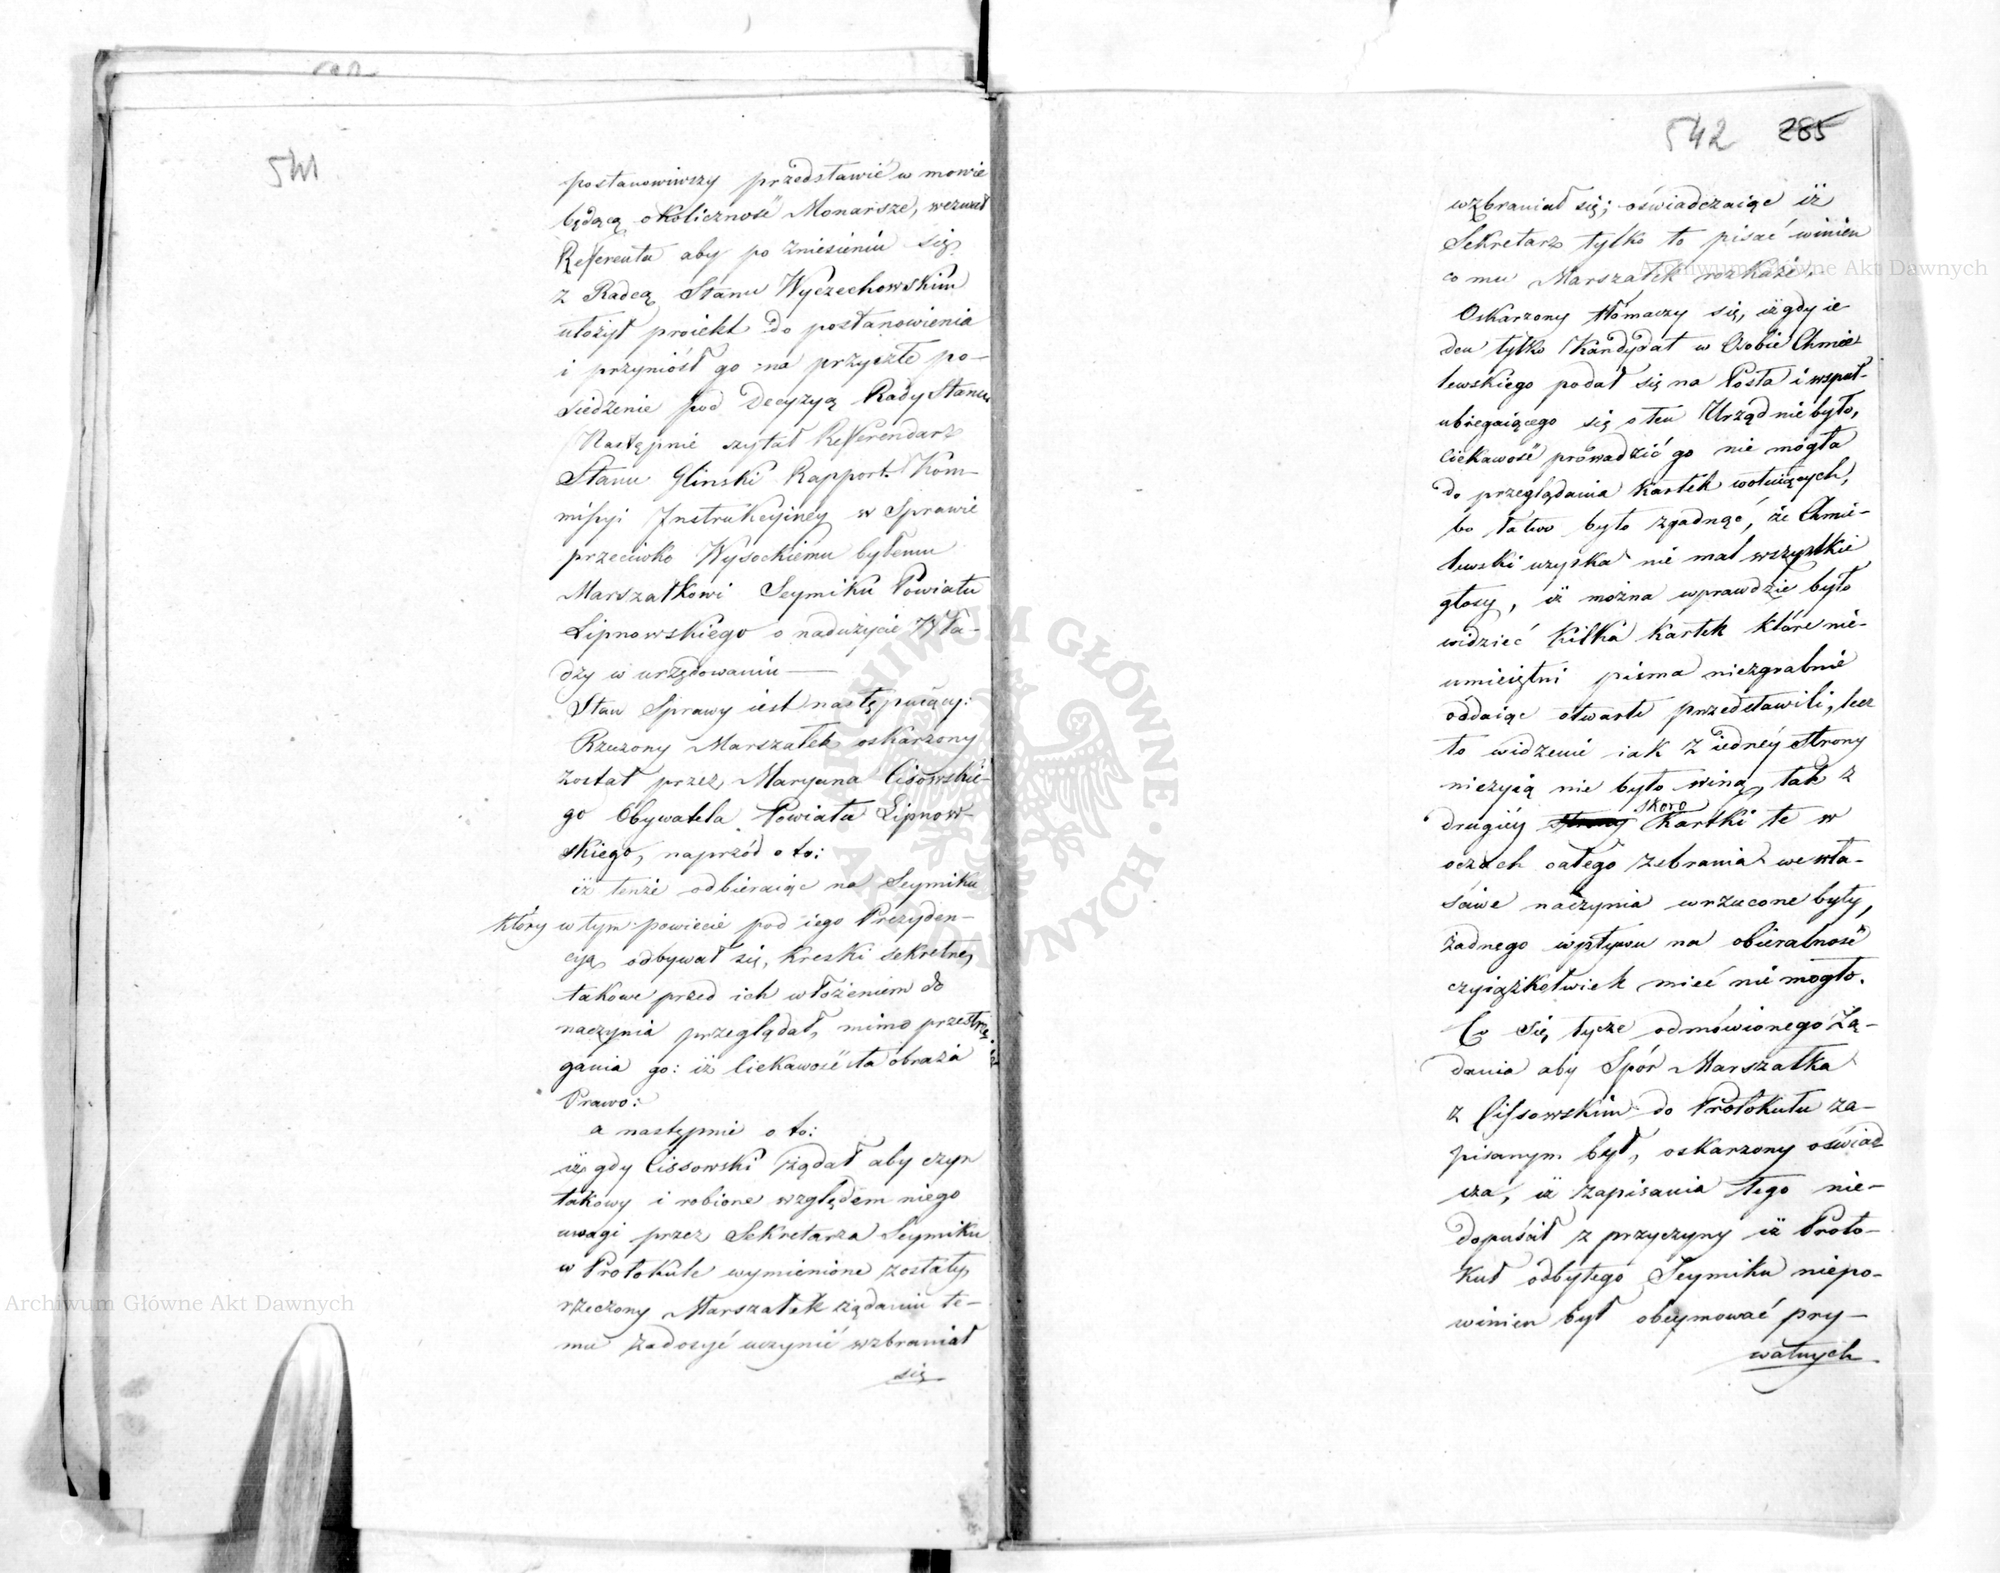 541
postanowiwszy przedstawić w mowie
będącą okoliczność Monarsze, wezwał
Referenta aby po zniesieniu się
z Radcą Stanu Wyczechowskim
ułożył proiekt do postanowienia
i przyniósł go na przyszłe po-
siedzenie pod decyzyą Rady Stanu
Następnie czytał Referendarz
Stanu Glinski Rapport Kom-
missyi Instrukcyiney w Sprawie
przeciwko Wysockiemu byłemu
Marszałkowi Seymiku Powiatu
Lipnowskiego o nadużycie Wła-
dzy w urzędowaniu —
Stan Sprawy iest następuiący:
Rzeczony Marszałek oskarżony
został przez Maryana Cisowskie-
go Obywatela Powiatu Lipnow-
skiego, naprzód o to:
iż tenże odbieraiąc na Seymiku
który w tym powiecie pod iego Prezyden-
cyą odbywał się, kreski sekretne,
takowe przed ich włożeniem do
naczynia przeglądał, mimo przestrze-
gania go: iż ciekawość ta obraża
Prawo:
a następnie o to:
iż gdy Cissowski żądał aby czyn
takowy i robione względem niego
uwagi przez Sekretarza Seymiku
w Protokule wymienione zostały,
rzeczony Marszałek żądaniu te-
mu zadosyć uczynić wzbraniał
się
542 285
wzbraniał się; oświadczaiąc iż
Sekretarz tylko to pisać winien
co mu Marszałek rozkaże.
Oskarżony tłómaczy się, iż gdy ie
den tylko Kandydat w Osobie Chmie
lewskiego podał się na Posła i współ-
ubiegaiącego się o ten Urząd nie było,
ciekawość prowadzić go nie mogła
do przeglądania kartek wotuiących,
bo łatwo było zgadnąć, że Chmie-
lewski uzyska nie mal wszystkie
głosy, iż można wprawdzie było
widzieć kilka kartek które nie-
umieiętni pisma niezgrabnie
oddaiąc otwarte przedstawili, lecz
to widzenie iak z iedney strony
niczyią nie było winą, tak z
drugiey strony skoro Kartki te w
oczach całego zebrania we wła-
ściwe naczynia wrzucone były,
żadnego wpływu na obieralność
czyiąśkolwiek mieć nie mogło.
Co się tycze odmówionego żą-
dania aby Spór Marszałka
z Cissowskim do Protokułu za-
pisanym był, oskarżony oświad
cza, iż zapisania tego nie-
dopuścił z przyczyny iż Proto-
kuł odbytego Seymiku niepo-
winien był obeymować pry-
watnych
Archiwum Główne Akt Dawnych
Archiwum Główne Akt Dawnych
ARCHIWUM GŁÓWNE AKT DAWNYCH